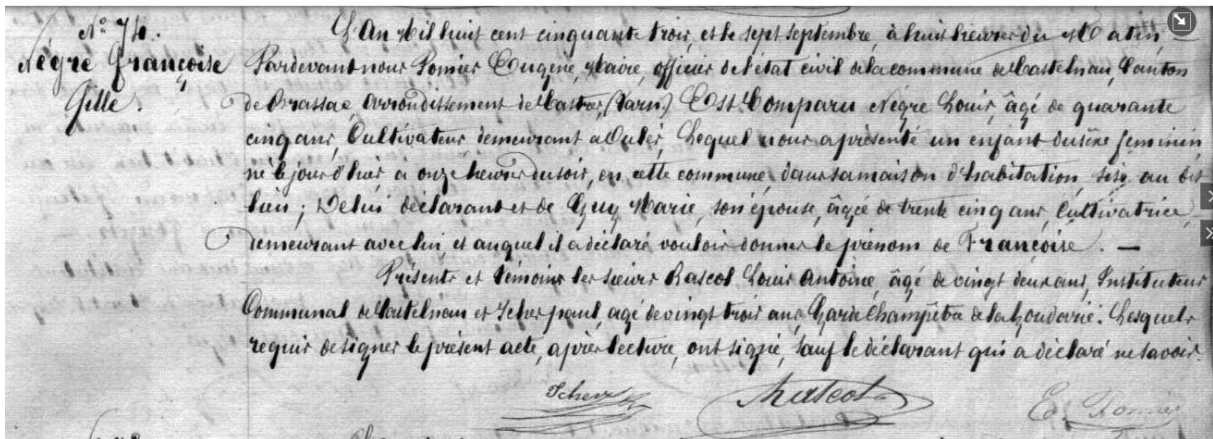 N° 74.
Nègre Françoise
fille.
L'An Mil huit cent cinquante trois, et le sept septembre, à huit heures du Matin
Pardevant nous Eugène, Maire, officier de l'état civil de la commune de Castelnau, Canton
de Brassac, Arrondissement de Castres, (Tarn) Est Comparu Nègre Louis, âgé de quarante
cinq ans, Cultivateur, demeurant a Lequel nous a présenté un enfant du sèxe feminin,
né le jour d'hier a onze heures du soir, en cette commune, dans sa maison d'habitation, sise au dit
lieu; De lui déclarant et de Guy Marie, son épouse, âgée de trente cinq ans, Cultivatrice,
demeurant avec lui, et auquel il a déclaré vouloir donner le prénom de Françoise. —
Présents et témoins les sieurs Rascol Louis Antoine, âgé de vingt deux ans, Instituteur
Communal de Castelnau et paul, agé de vingt trois ans, Garde Champêtre de Lesquels
requis de signer le présent acte, après lecture, ont signé, sauf le déclarant qui a déclaré ne savoir.
Rascol